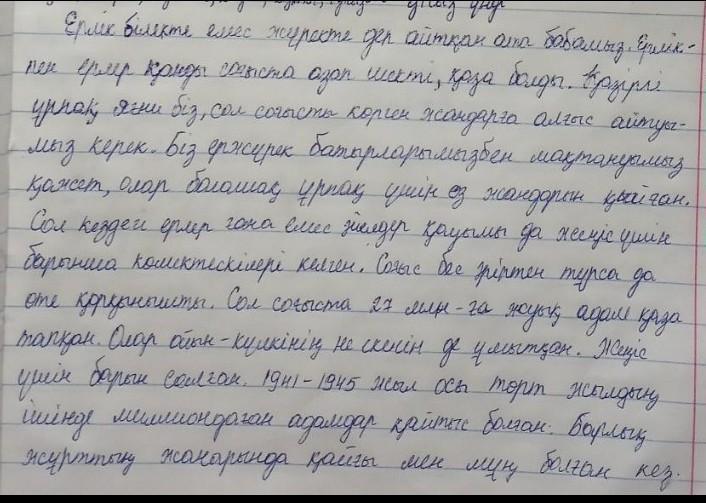 Ерлік білекте емес жүректе деп айтқан ата бабамыз. Ерлік-
пен ерлер қанды соғыста азап шекті, қаза болды. Қазіргі
ұрпақ яғни біз, сол соғысты көрген жандарға алғыс айтуы-
мыз керек. Біз ержүрек батырларымызбен мақтануымыз
қажет, олар болашақ ұрпақ үшін өз жандарын қыйған.
Сол кездегі ерлер ғана емес әйелдер қауымы да жеңіс үшін
барынша көмектескілері келген. Соғыс бес әріптен тұрса да
өте қорқынышты. Сол соғыста 27 млн-ға жуық адам қаза
тапқан. Олар ойын-күлкінің не екенін де ұмытқан. Жеңіс
үшін барын салған. 1941-1945 жыл осы төрт жылдың
ішінде миллиондаған адамдар қайтыс болған. Барлық
жұрттың жанарында қайғы мен мұң болған кез.